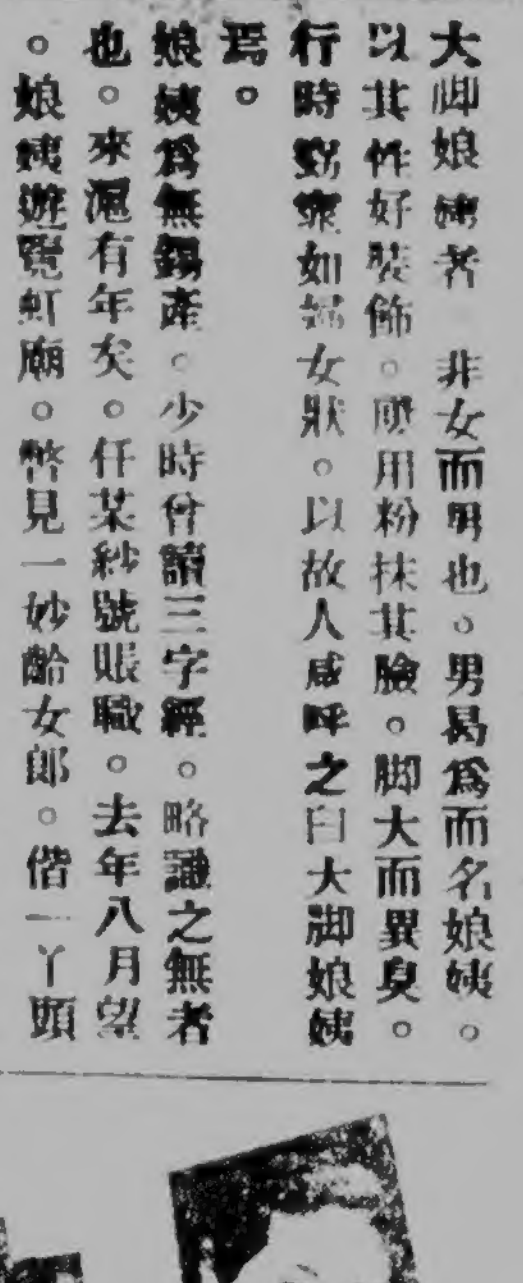 大脚娘姨者　非女而男也。男曷爲而名娘姨。
以其性好裝飾。愛用粉抹其臉。脚大而異臭。
行時裊裊如婦女狀。以故人咸呼之曰大脚娘姨
焉。
娘姨爲無錫產。少時曾讀三字經。略識之無者
也。來滬有年矣。任某紗號賬職。去年八月望
。娘姨遊覽虹廟。瞥見一妙齡女郎。偕一丫頭